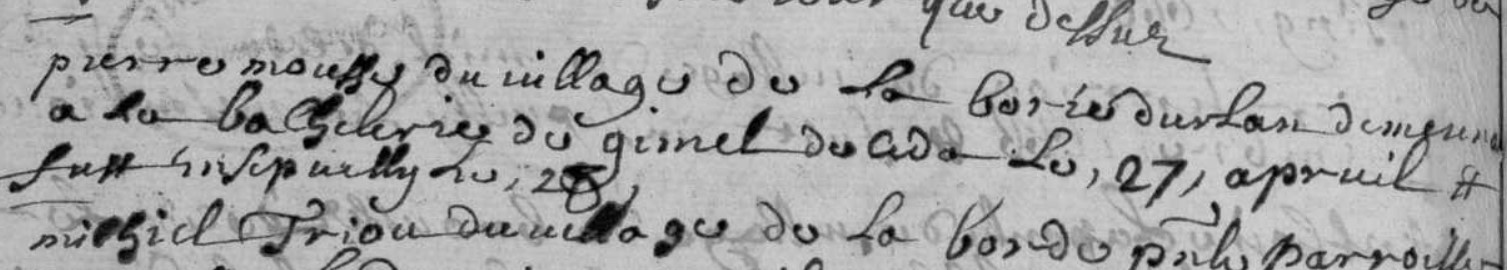 que dessus
pierre mousty du uillage de la borie durlan demeurant
a la bachelerie de gimel deceda le, 27, apruil &
fust ensepuelly le, 28,
michiel Triou du uillage de la borde pnte parroisse